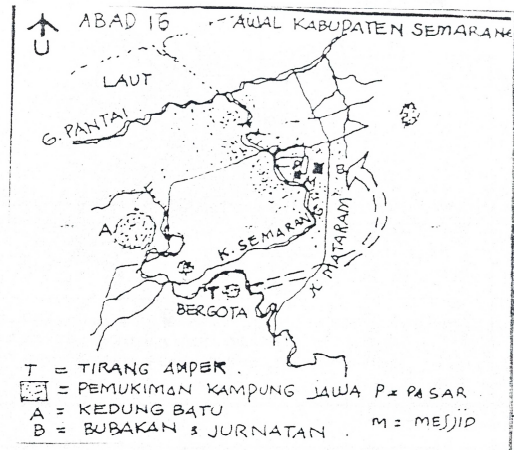 U
ABAD 16 - AWAL KABUPATEN SEMARANG
LAUT
G. PANTAI
B
A
K. SEMARANG
JL MATARAM
T
BERGOTA
T = TIRANG AMPER.
= PEMUKIMAN KAMPUNG JAWA P = PASAR
A = KEDUNG BATU
B = BUBAKAN & JURNATAN. M = MESJID